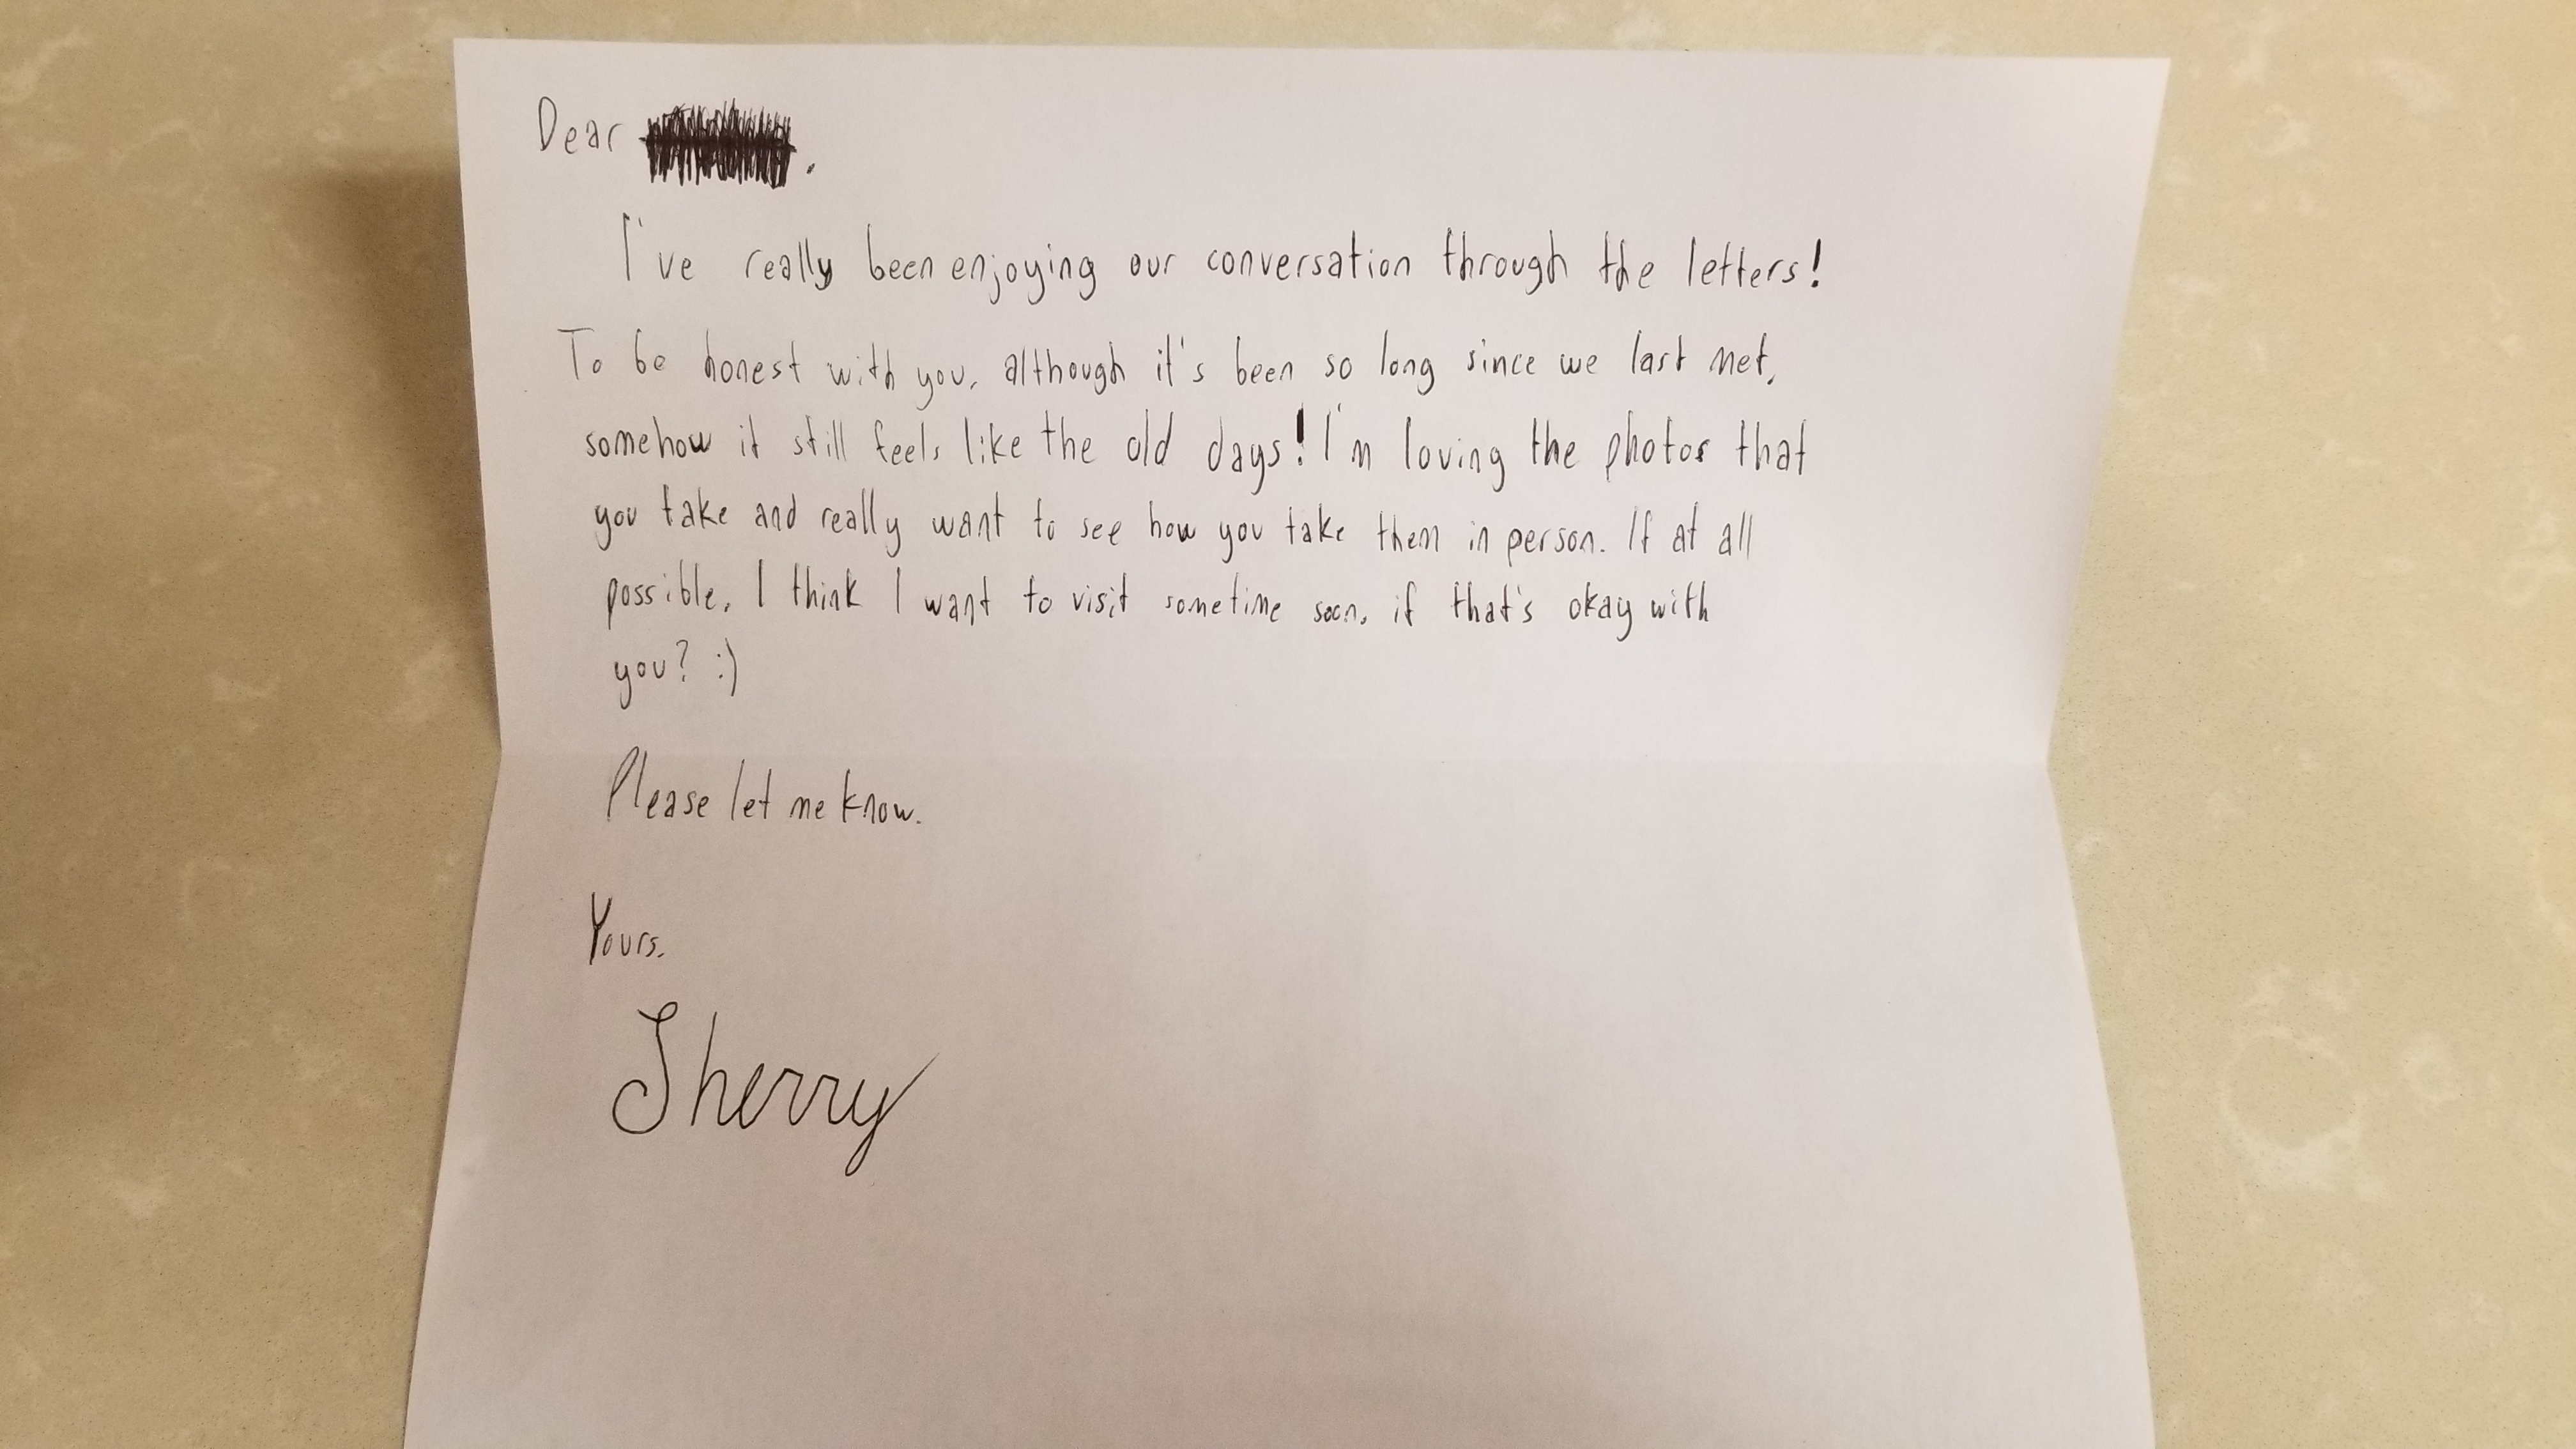 Dear
I've really been enjoying our conversation through the letters!
To be honest with you, although it's been so long since we last met,
somehow it still feels like the old days! I'm loving the photos that
you take and really want to see how you take them in person. If at all
possible, I think I want to visit sometime soon, if that's okay with
you? :)
Please let me know.
Yours,
Sherry